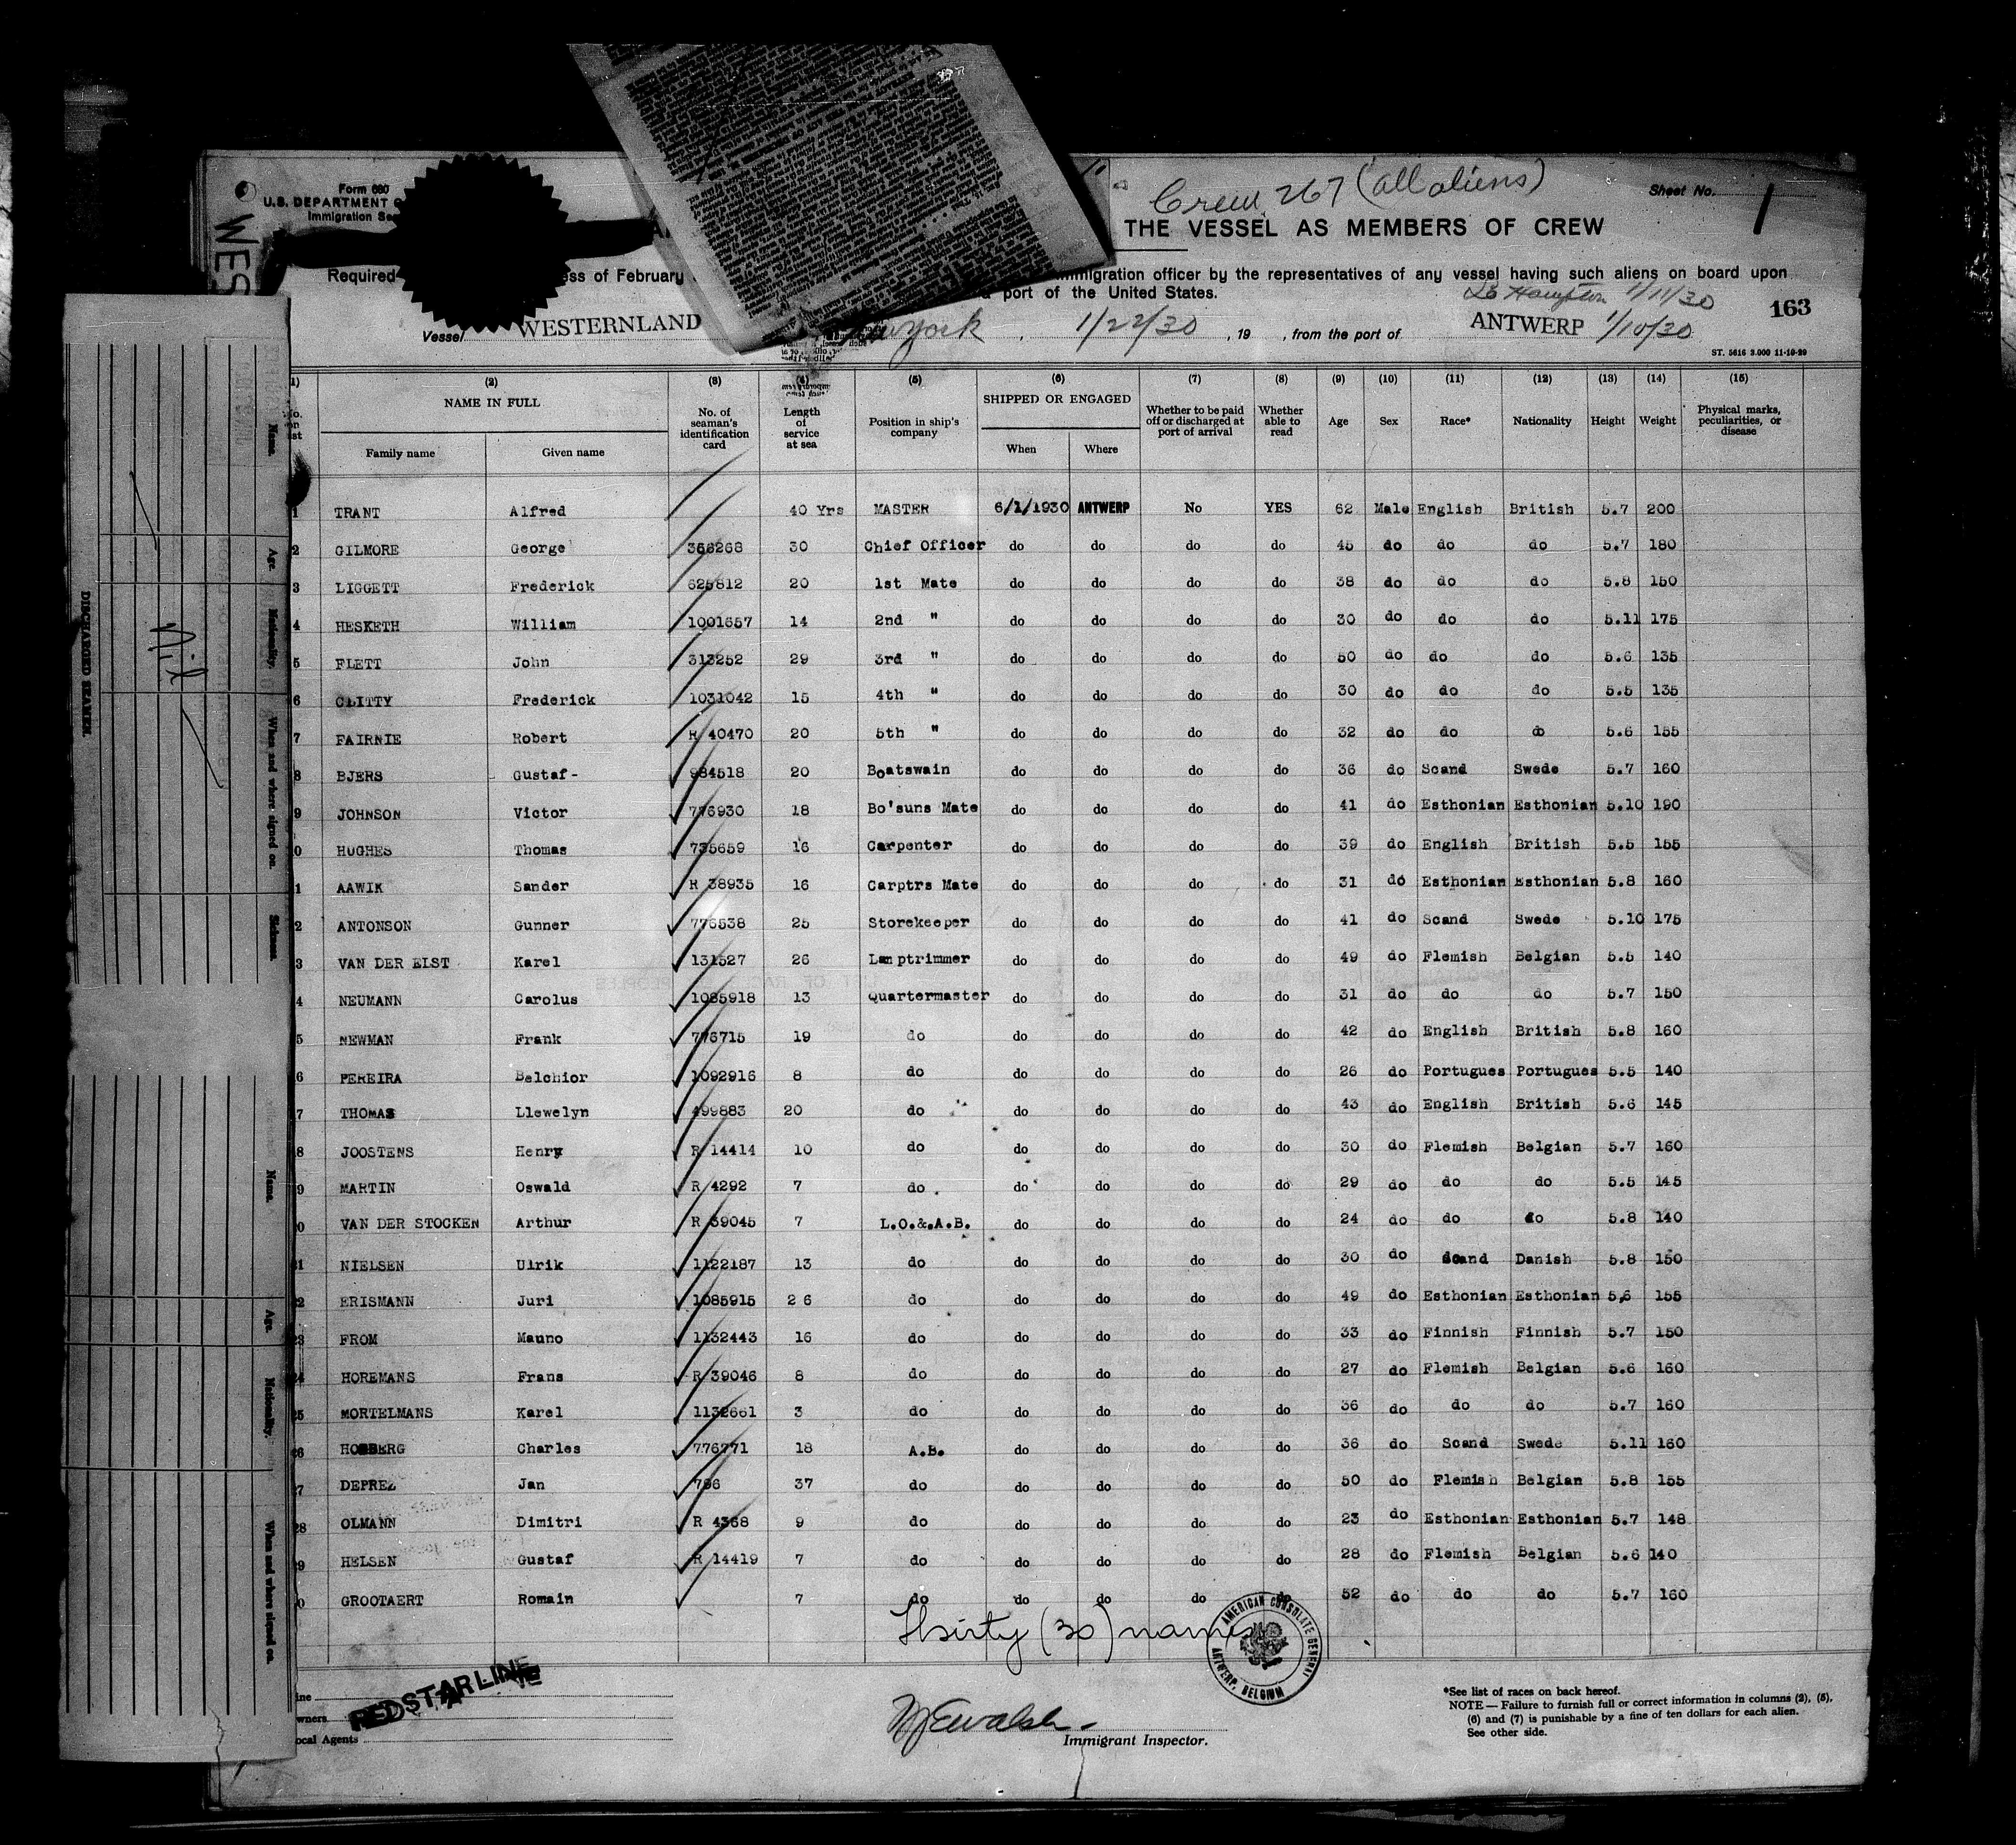 Crew 267 (all aliens)
Form 680
U.S. DEPARTMENT
Immigration
Sheet No. 1
THE VESSEL AS MEMBERS OF CREW
Required ess of February immigration officer by the representatives of any vessel having such aliens on board upon
port of the United States.
So Hampton 1/11/30
163
Vessel WESTERNLAND York , 1/22/30 , 19 , from the port of ANTWERP 1/10/30
ST. 5616 3.000 11-19-29
(2) (3) (4) (5) (6) (7) (8) (9) (10) (11) (12) (13) (14) (15)
NAME IN FULL
Family name Given name
No. of seaman's identification card
Length of service at sea
Position in ship's company
SHIPPED OR ENGAGED
When Where
Whether to be paid off or discharged at port of arrival
Whether able to read
Age Sex Race* Nationality Height Weight
Physical marks, peculiarities, or disease
1 TRANT Alfred 40 Yrs MASTER 6/1/1930 ANTWERP No YES 62 Male English British 5.7 200
2 GILMORE George 356268 30 Chief Officer do do do do 45 do do do 5.7 180
3 LIGGETT Frederick 625812 20 1st Mate do do do do 38 do do do 5.8 150
4 HESKETH William 1001657 14 2nd " do do do do 30 do do do 5.11 175
5 FLETT John 313252 29 3rd " do do do do 50 do do do 5.6 135
6 CLITTY Frederick 1031042 15 4th " do do do do 30 do do do 5.5 135
7 FAIRNIE Robert R 40470 20 5th " do do do do 32 do do do 5.6 155
8 BJERS Gustaf- 984518 20 Boatswain do do do do 36 do Scand Swede 5.7 160
9 JOHNSON Victor 776930 18 Bo'suns Mate do do do do 41 do Esthonian Esthonian 5.10 190
0 HUGHES Thomas 735659 16 Carpenter do do do do 39 do English British 5.5 155
1 AAWIK Sander R 38935 16 Carptrs Mate do do do do 31 do Esthonian Esthonian 5.8 160
2 ANTONSON Gunner 776538 25 Storekeeper do do do do 41 do Scand Swede 5.10 175
3 VAN DER ELST Karel 131527 26 Lamptrimmer do do do do 49 do Flemish Belgian 5.5 140
4 NEUMANN Carolus 1085918 13 Quartermaster do do do do 31 do do do 5.7 150
5 NEWMAN Frank 776715 19 do do do do do 42 do English British 5.8 160
6 PEREIRA Belchior 1092916 8 do do do do do 26 do Portugues Portugues 5.5 140
7 THOMAS Llewelyn 499883 20 do do do do do 43 do English British 5.6 145
8 JOOSTENS Henry R 14414 10 do do do do do 30 do Flemish Belgian 5.7 160
9 MARTIN Oswald R 4292 7 do do do do do 29 do do do 5.5 145
0 VAN DER STOCKEN Arthur R 39045 7 L.O.&.A.B. do do do do 24 do do do 5.8 140
21 NIELSEN Ulrik 1122187 13 do do do do do 30 do Scand Danish 5.8 150
22 ERISMANN Juri 1085915 26 do do do do do 49 do Esthonian Esthonian 5.6 155
23 FROM Mauno 1132443 16 do do do do do 33 do Finnish Finnish 5.7 150
24 HOREMANS Frans R 39046 8 do do do do do 27 do Flemish Belgian 5.6 160
25 MORTELMANS Karel 1132661 3 do do do do do 36 do do do 5.7 160
26 Charles 776771 18 A.B. do do do do 36 do Scand Swede 5.11 160
27 DEPREZ Jan 796 37 do do do do do 50 do Flemish Belgian 5.8 155
28 OLMANN Dimitri R 4368 9 do do do do do 23 do Esthonian Esthonian 5.7 148
29 HELSEN Gustaf R 14419 7 do do do do do 28 do Flemish Belgian 5.6 140
0 GROOTAERT Romain 7 do do do do do 52 do do do 5.7 160
Thirty (30) names
AMERICAN CONSULATE GENERAL
ANTWERP, BELGIUM
RED STAR LINE
Line
Owners
Local Agents
Immigrant Inspector.
*See list of races on back hereof.
NOTE — Failure to furnish full or correct information in columns (2), (5),
(6) and (7) is punishable by a fine of ten dollars for each alien.
See other side.
DISCHARGED SEAMEN.
Name. Age. Nationality. When and where signed on. Sickness.
Nil
Name. Age. Nationality. When and where signed on.
WES